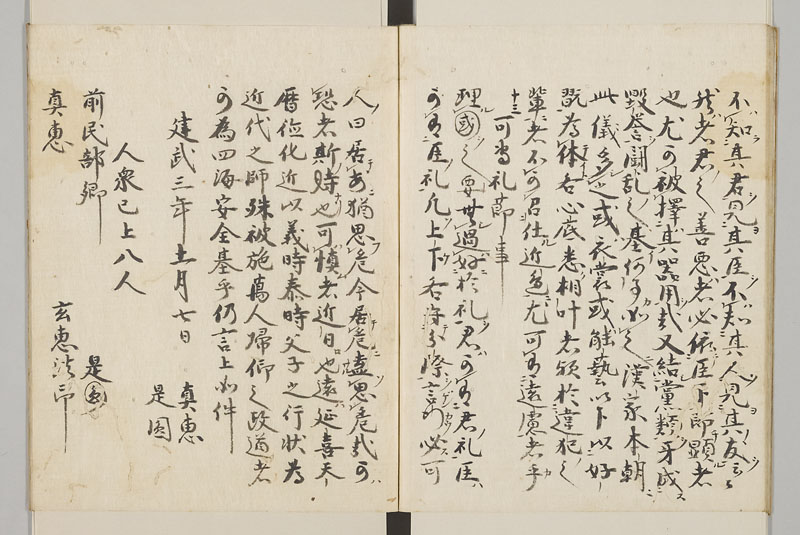 不知其君見其臣不知其人見其友云々
然者君之善悪者必依臣下即顕者
也尤可被擇其器用哉又結黨類互成
毀誉闘乱之基何事如之漢家本朝
此儀多之或衣裳或能藝以下以好
翫為体各心底悉相叶者頗於違犯之
輩者不可召仕近邊尤可有遠慮者乎
十三一可専礼節事
理國之要無過好於礼君可有君礼臣
可有臣礼凡上下各守分際言行必可
人曰居安猶思危今居危盍思危哉可
恐者斯時也可慎者近日也遠延喜天
暦徳化近以義時泰時父子之行状為
近代之師殊被施萬人帰仰之政道者
可為四海安全基乎仍言上如件
建武三年十一月七日 真恵
是円
人衆已上八人
前民部卿 是円
真恵 玄恵法印